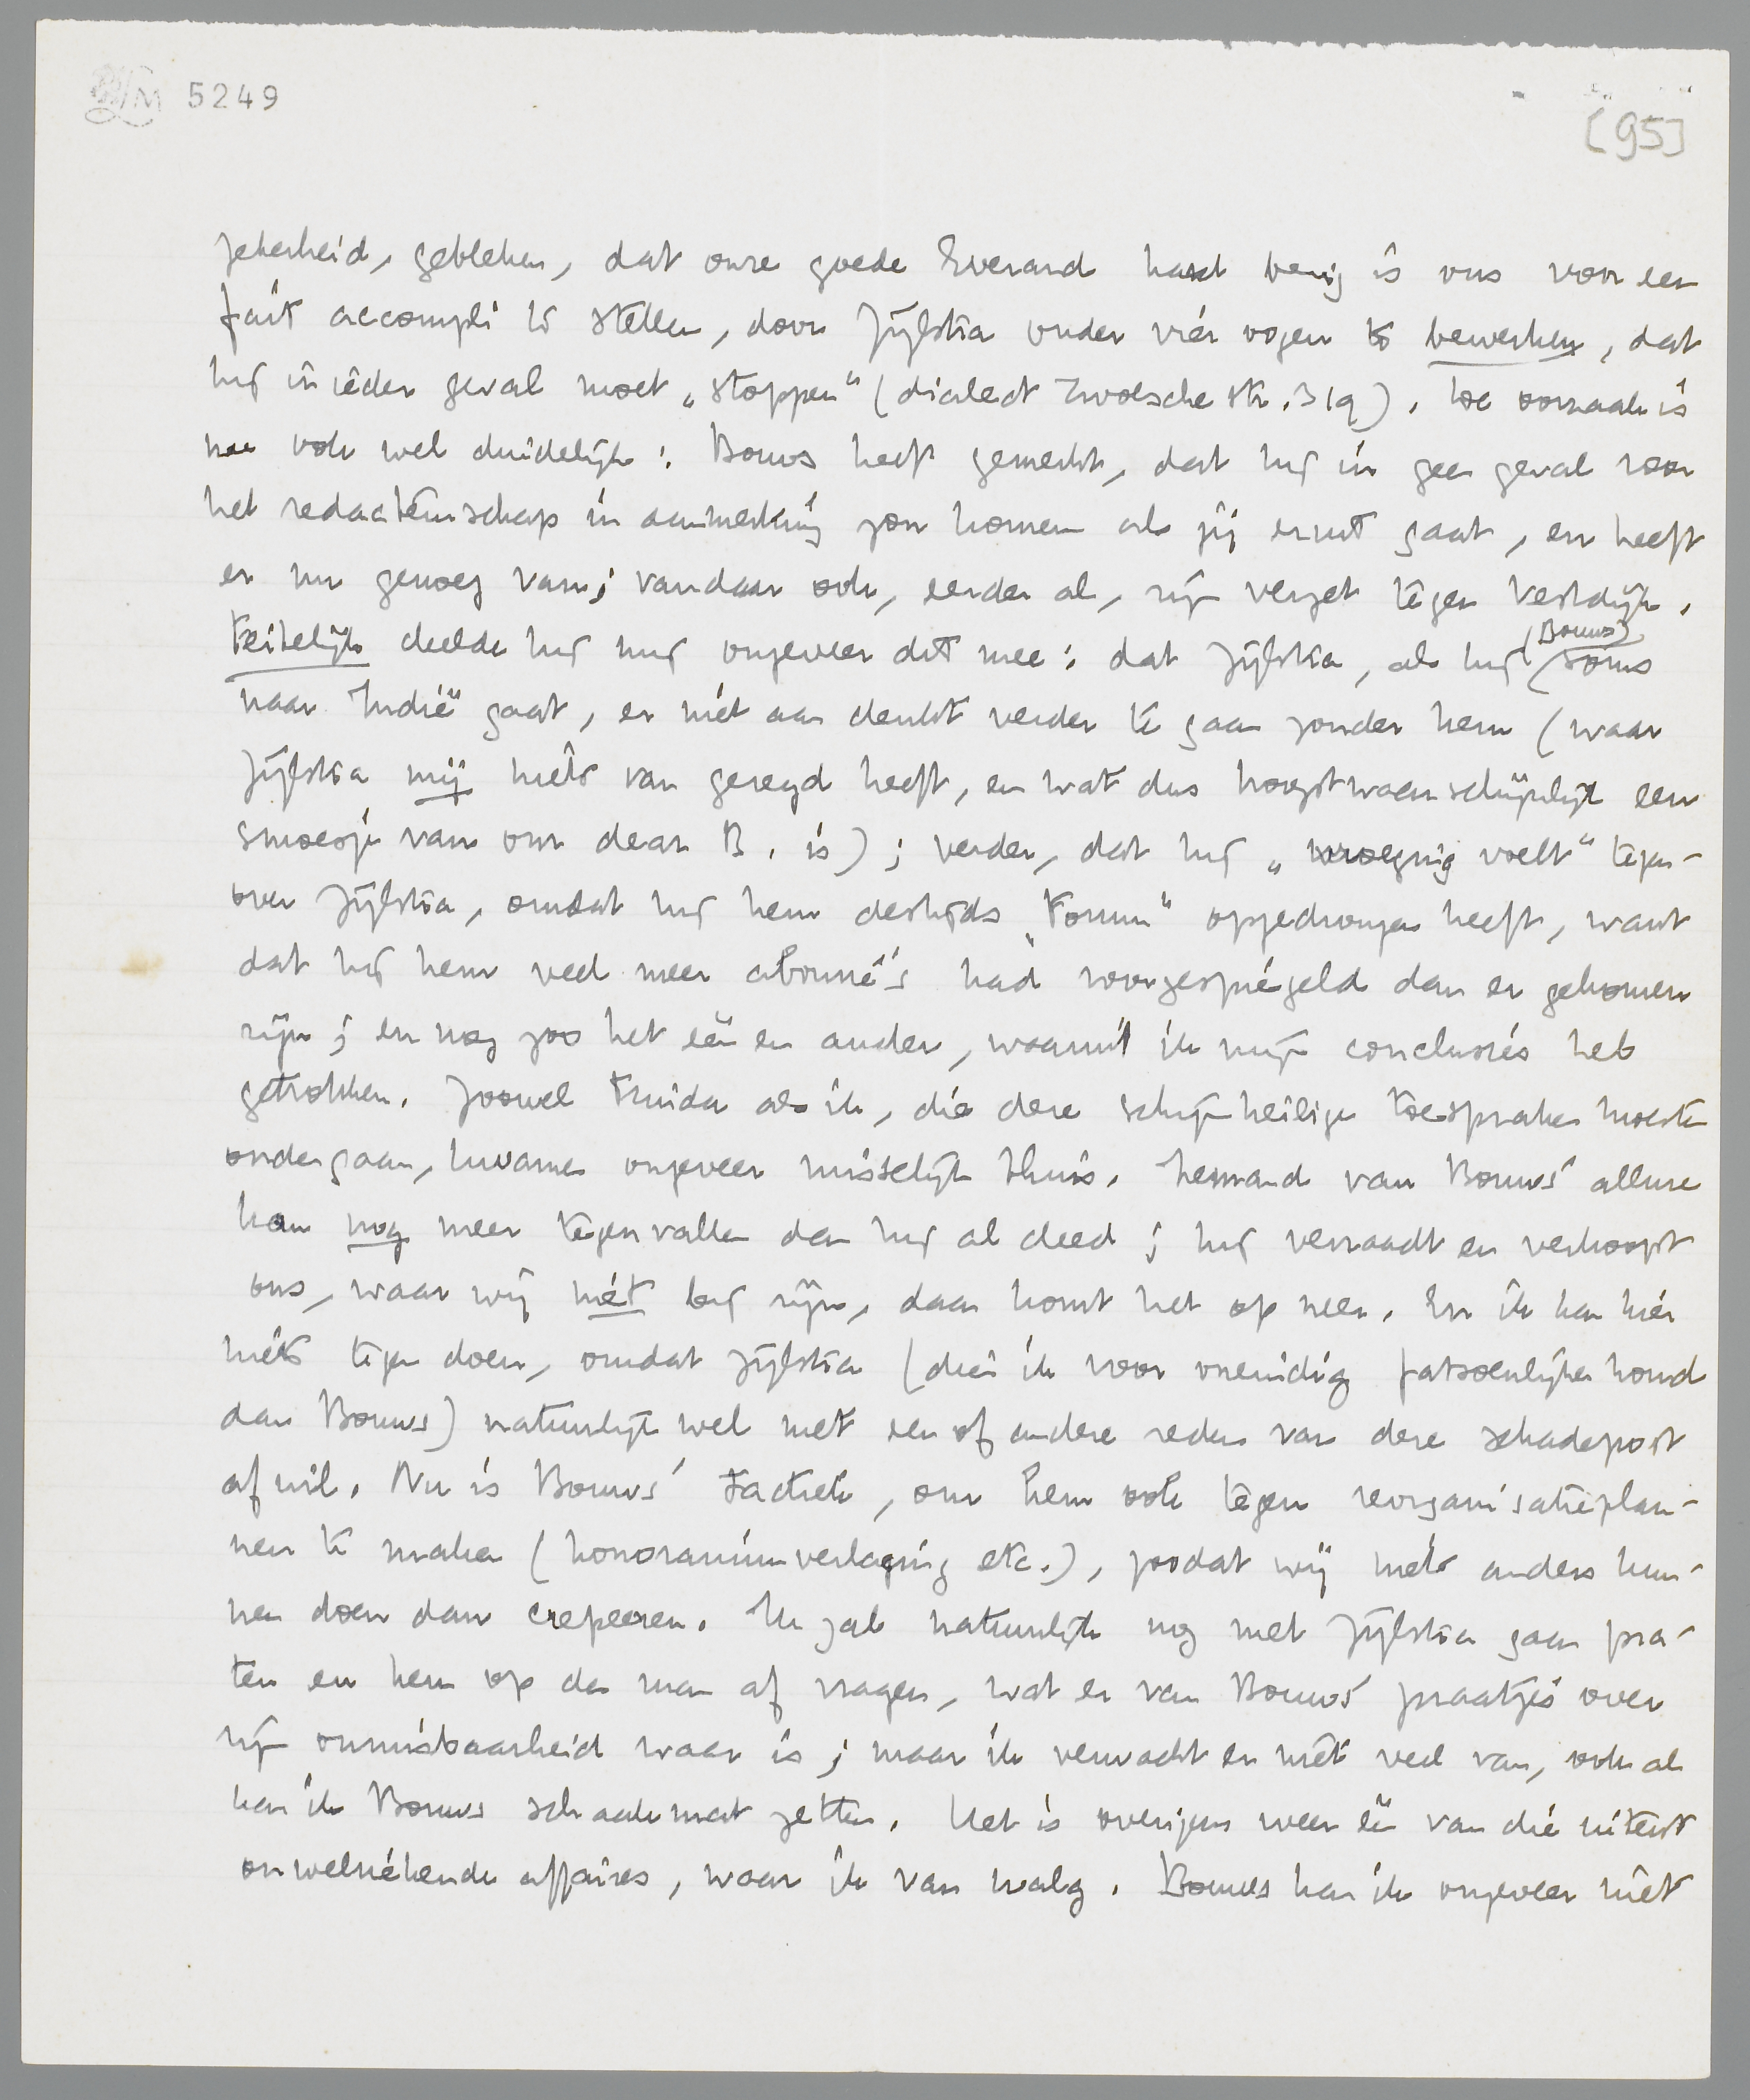 5249
[95]
zekerheid, gebleken, dat onze goede Everard hard bezig is ons voor een
fait accompli te stellen, door Zijlstra onder vier oogen te bewerken, dat
hij in ieder geval moet „stoppen" (dialect Zwolsche str. 319). De oorzaak is
me ook wel duidelijk: Bouws heeft gemerkt, dat hij in geen geval voor
het redacteurschap in aanmerking zou komen als jij eruit gaat, en heeft
er nu genoeg van; vandaar ook, eerder al, zijn verzet tegen Vestdijk.
Feitelijk deelde hij mij ongeveer dit mee: dat Zijlstra, als hij (Bouws) soms
naar Indië gaat, er niet aan denkt verder te gaan zonder hem (waar
Zijlstra mij niets van gezegd heeft, en wat dus hoogstwaarschijnlijk een
smoesje van our dear B. is); verder, dat hij „wroeging voelt" tegen-
over Zijlstra, omdat hij hem destijds „Forum" opgedrongen heeft, want
dat hij hem veel meer abonné's had voorgespiegeld dan er gekomen
zijn; en nog zoo het een en ander, waaruit ik mijn conclusies heb
getrokken. Zoowel Truida als ik, die deze schijnheilige toespraken moesten
ondergaan, kwamen ongeveer misselijk thuis. Iemand van Bouws' allure
kan nog meer tegenvallen dan hij al deed; hij verraadt en verkoopt
ons, waar wij niet bij zijn, daar komt het op neer. En ik kan hier
niets tegen doen, omdat Zijlstra (dien ik voor oneindig fatsoenlijker houd
dan Bouws) natuurlijk wel met een of andere reden van deze schadepost
af wil. Nu is Bouws' tactiek, om hem ook tegen reorganisatieplan-
nen te maken (honorariumverlaging etc.), zoodat wij niets anders kun-
nen doen dan crepeeren. Ik zal natuurlijk nog met Zijlstra gaan pra-
ten en hem op de man af vragen, wat er van Bouws' praatjes over
zijn onmisbaarheid waar is; maar ik verwacht er niet veel van, ook al
kan ik Bouws schaakmat zetten. Het is overigens weer een van die uiterst
onwelriekende affaires, waar ik van walg. Bouws kan ik ongeveer niet